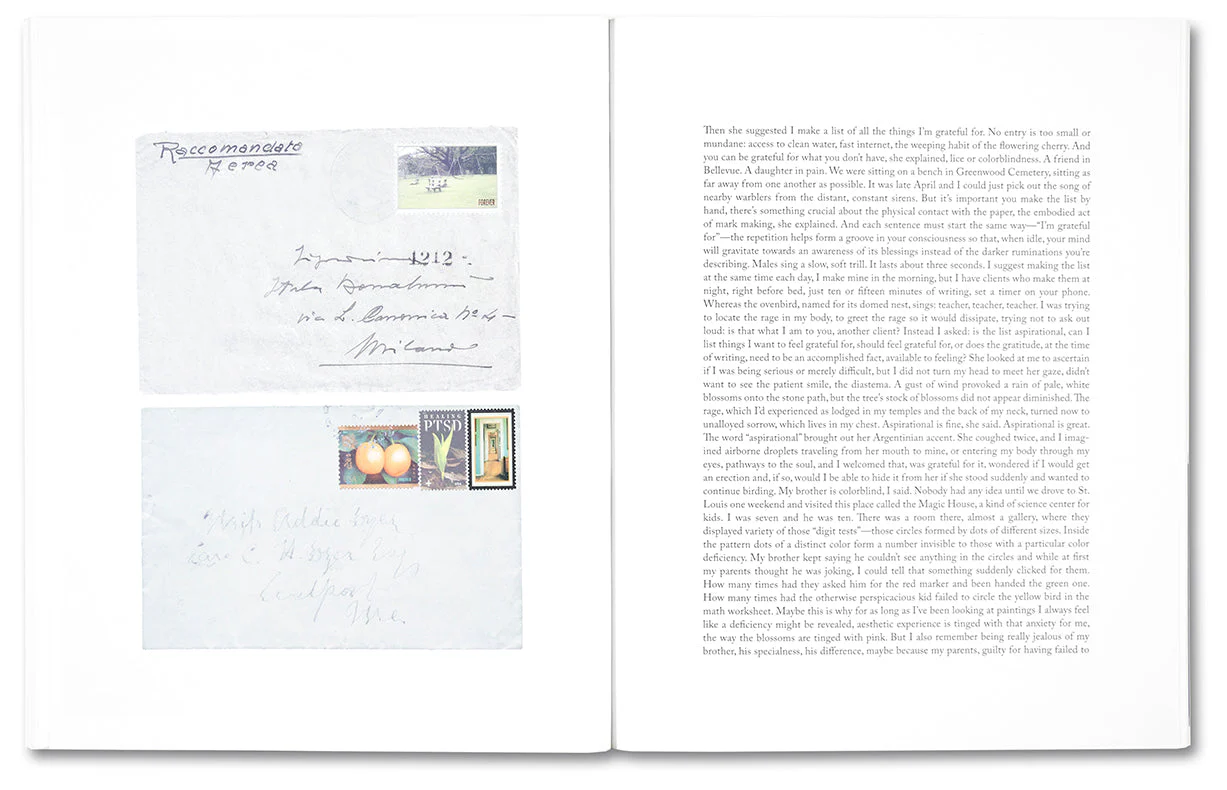 Raccomandata
Aerea
FOREVER
1212
Milano
HEALING
PTSD
Then she suggested I make a list of all the things I'm grateful for. No entry is too small or
mundane: access to clean water, fast internet, the weeping habit of the flowering cherry. And
you can be grateful for what you don't have, she explained, lice or colorblindness. A friend in
Bellevue. A daughter in pain. We were sitting on a bench in Greenwood Cemetery, sitting as
far away from one another as possible. It was late April and I could just pick out the song of
nearby warblers from the distant, constant sirens. But it's important you make the list by
hand, there's something crucial about the physical contact with the paper, the embodied act
of mark making, she explained. And each sentence must start the same way—“I'm grateful
for”—the repetition helps form a groove in your consciousness so that, when idle, your mind
will gravitate towards an awareness of its blessings instead of the darker ruminations you're
describing. Males sing a slow, soft trill. It lasts about three seconds. I suggest making the list
at the same time each day, I make mine in the morning, but I have clients who make them at
night, right before bed, just ten or fifteen minutes of writing, set a timer on your phone.
Whereas the ovenbird, named for its domed nest, sings: teacher, teacher, teacher. I was trying
to locate the rage in my body, to greet the rage so it would dissipate, trying not to ask out
loud: is that what I am to you, another client? Instead I asked: is the list aspirational, can I
list things I want to feel grateful for, should feel grateful for, or does the gratitude, at the time
of writing, need to be an accomplished fact, available to feeling? She looked at me to ascertain
if I was being serious or merely difficult, but I did not turn my head to meet her gaze, didn't
want to see the patient smile, the diastema. A gust of wind provoked a rain of pale, white
blossoms onto the stone path, but the tree's stock of blossoms did not appear diminished. The
rage, which I'd experienced as lodged in my temples and the back of my neck, turned now to
unalloyed sorrow, which lives in my chest. Aspirational is fine, she said. Aspirational is great.
The word “aspirational” brought out her Argentinian accent. She coughed twice, and I imag-
ined airborne droplets traveling from her mouth to mine, or entering my body through my
eyes, pathways to the soul, and I welcomed that, was grateful for it, wondered if I would get
an erection and, if so, would I be able to hide it from her if she stood suddenly and wanted to
continue birding. My brother is colorblind, I said. Nobody had any idea until we drove to St.
Louis one weekend and visited this place called the Magic House, a kind of science center for
kids. I was seven and he was ten. There was a room there, almost a gallery, where they
displayed variety of those “digit tests”—those circles formed by dots of different sizes. Inside
the pattern dots of a distinct color form a number invisible to those with a particular color
deficiency. My brother kept saying he couldn't see anything in the circles and while at first
my parents thought he was joking, I could tell that something suddenly clicked for them.
How many times had they asked him for the red marker and been handed the green one.
How many times had the otherwise perspicacious kid failed to circle the yellow bird in the
math worksheet. Maybe this is why for as long as I've been looking at paintings I always feel
like a deficiency might be revealed, aesthetic experience is tinged with that anxiety for me,
the way the blossoms are tinged with pink. But I also remember being really jealous of my
brother, his specialness, his difference, maybe because my parents, guilty for having failed to